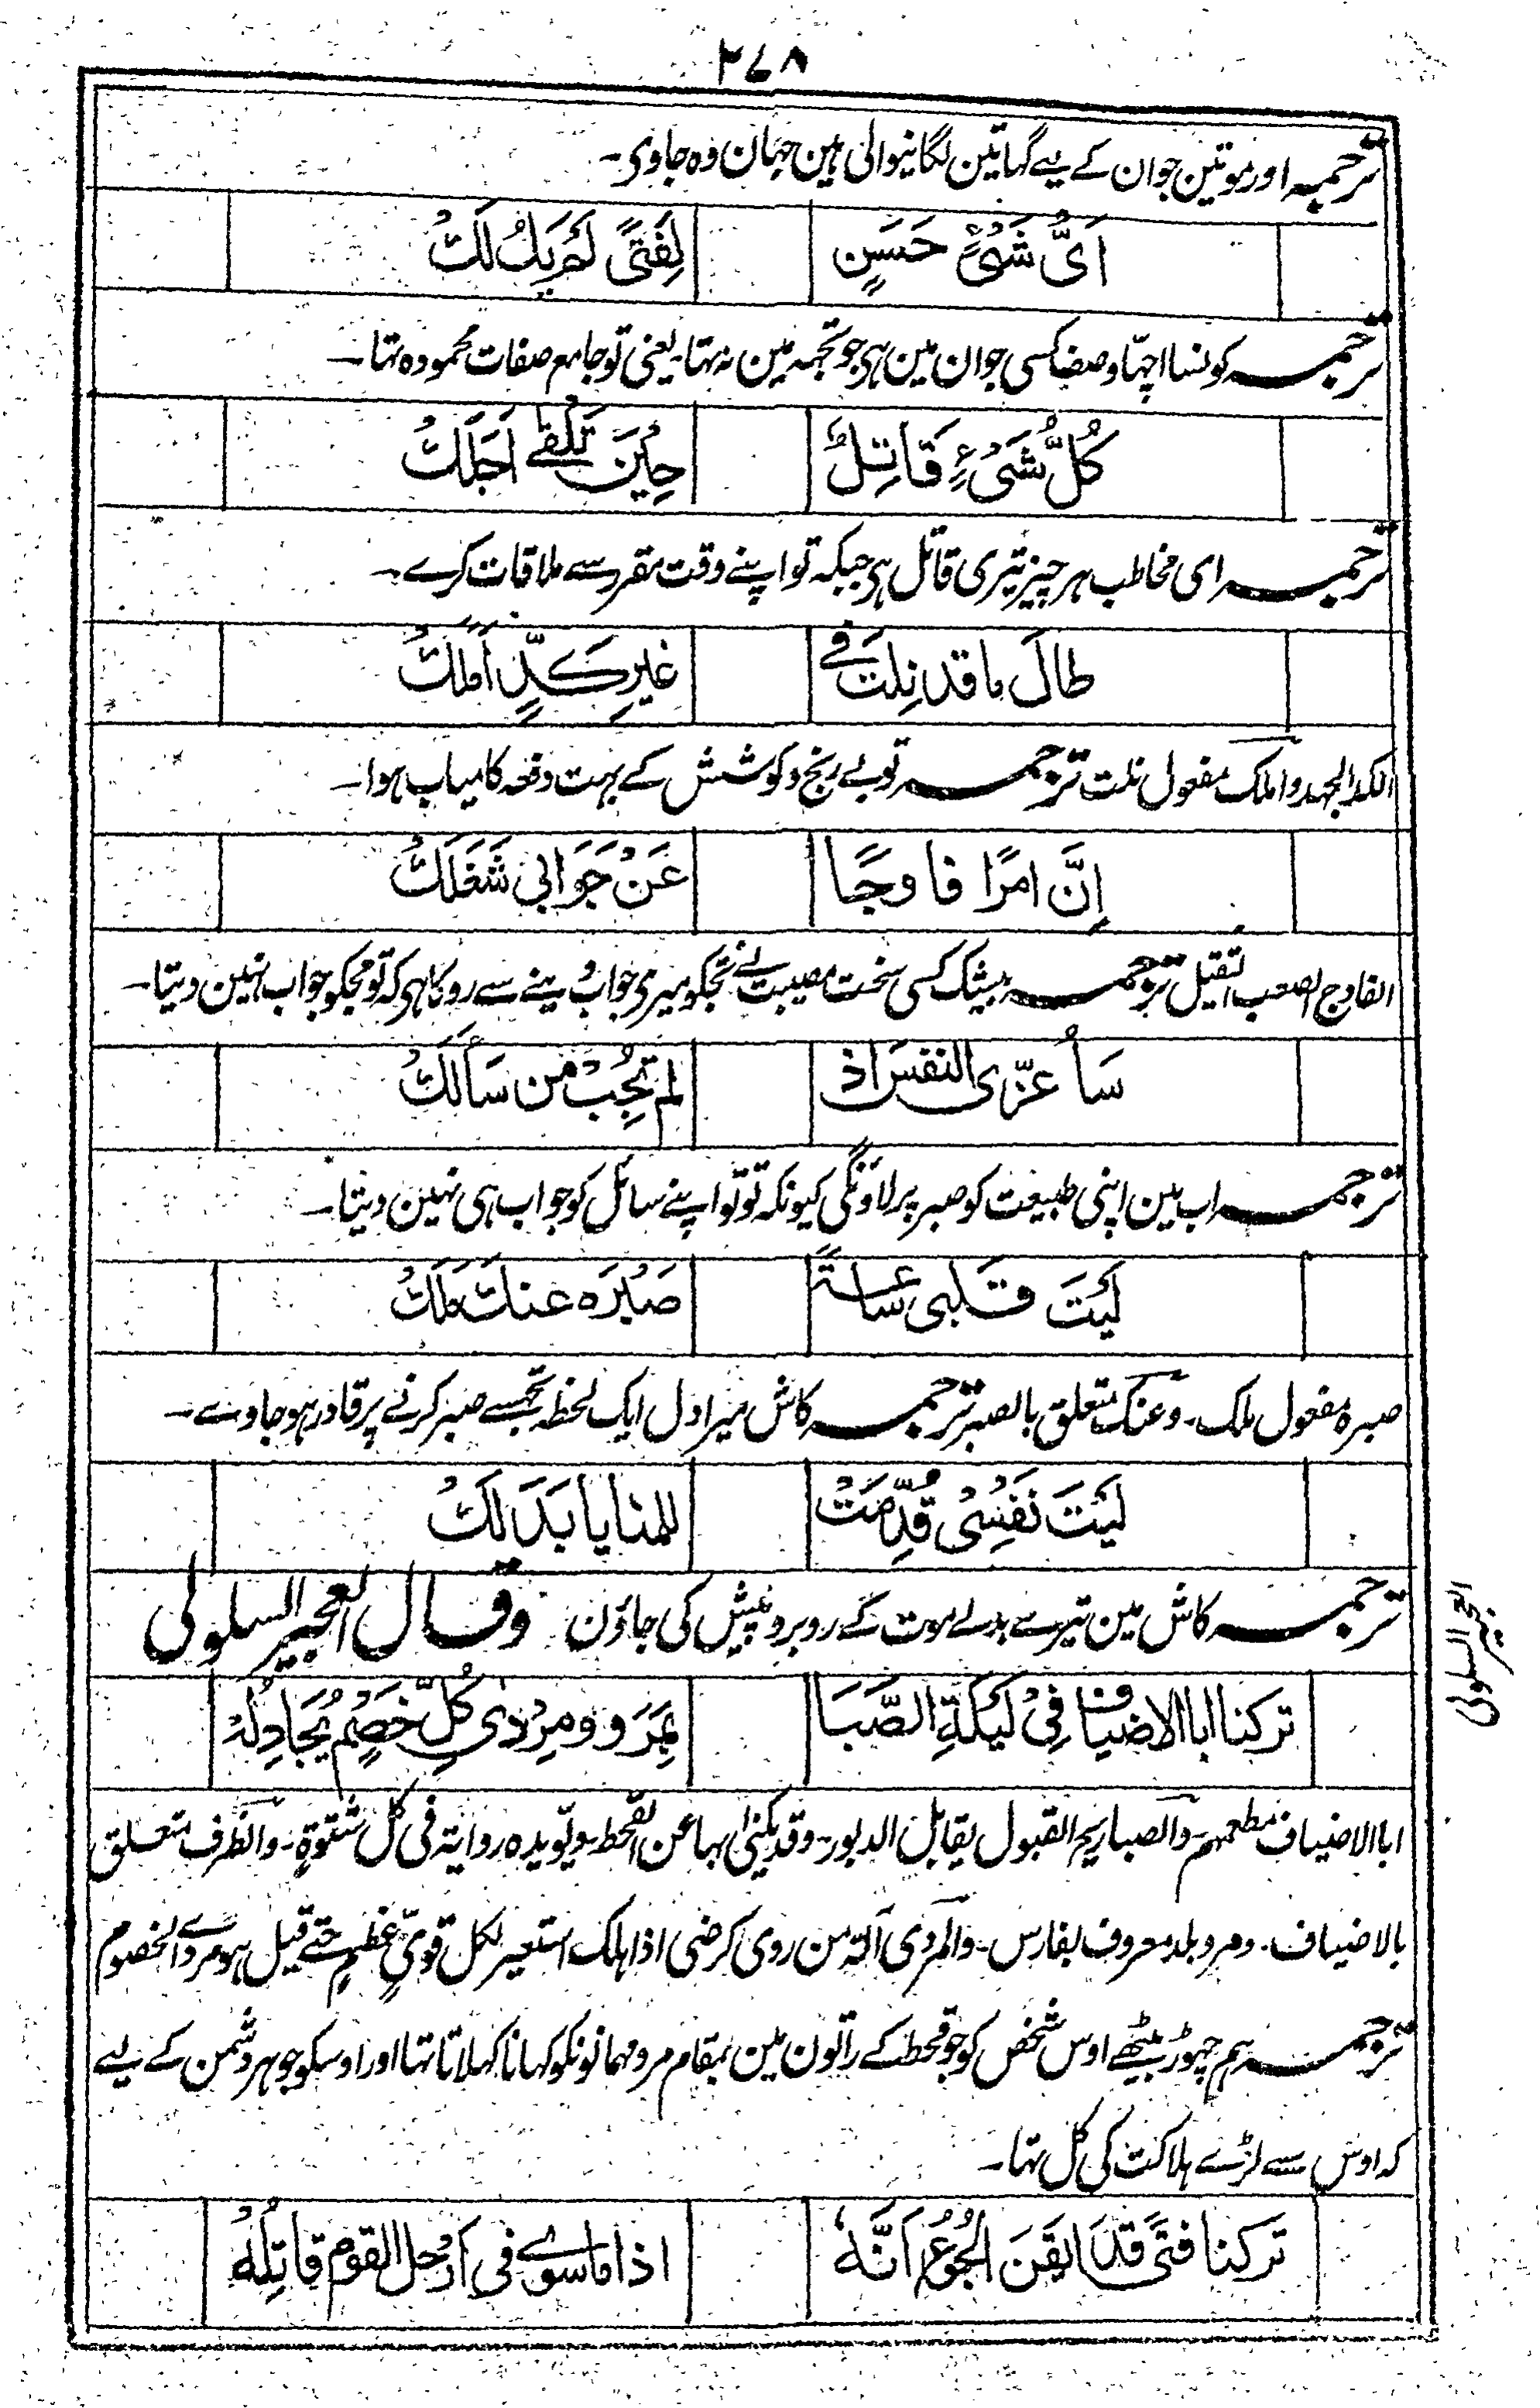 ٣٧٨
ترجمہ اور موتین جوان کے لیے گہاتین لگانیوالی ہین جہان وہ جاوی۔
اَیُّ شَیْءٍ حَسَنٍ لِفَتًی لَمْ یَكُ لَكْ
ترجمہ کونسا اچہا وصف کسی جوان مین ہی جو تجہہ مین نہ تہا۔ یعنی تو جامع صفات محمودہ تہا۔
كُلُّ شَیْءٍ قَاتِلٌ حِیْنَ تَلْقٰی اَجَلَكْ
ترجمہ ای مخاطب ہر چیز تیری قاتل ہی جبکہ تو اپنے وقت مقرر سے ملاقات کرے۔
طَالَ ما قد نِلتَ فی غیرِ كَدٍّ اَمَلَكْ
الکد الجہد واملک مفعول نلت ترجمہ تو بے رنج و کوشش کے بہت دفعہ کامیاب ہوا۔
اِنَّ امرًا فادِحًا عَنْ جَوَابی شَغَلَكْ
الفادح الصعب الثقیل ترجمہ بیشک کسی سخت مصیبت نے تجکو میری جواب دینے سے روکا ہی کہ تو مجکو جواب نہین دیتا۔
سَاُعَزّی النفسَ اذ لم تُجِبْ من سَاَلَكْ
ترجمہ اب مین اپنی طبیعت کو صبر پر لاؤنگی کیونکہ تو تو اپنے سائل کو جواب ہی نہین دیتا۔
لَیْتَ قَلبی ساعةً صَبْرَہ عنكَ مَلَكْ
صبرہ مفعول ملک۔ وعنک متعلق بالصبر ترجمہ کاش میرا دل ایک لحظہ تجہسے صبر کرنے پر قادر ہو جاوے۔
لَیْتَ نَفْسِیْ قُدِّمَتْ للمنایا بَدَلَكْ
ترجمہ کاش مین تیرے بدلے موت کے روبرو پیش کی جاؤن وقال العجیر السلولی
العجیر السلولی
ترکنا ابا الاضیاف فِیْ لَیْلَةِ الصَّبَا بِمَرْوٍ ومِرْدٰی كُلِّ خَصْمٍ یُجَادِلُهْ
ابا الاضیاف مطعمہم۔ والصبا ریح القبول یقابل الدبور۔ وقد یکنی بہا عن القحط ویؤیدہ روایۃ فی کل شتوۃٍ۔ والظرف متعلق
بالاضیاف۔ ومرو بلد معروف بفارس۔ والمردی آلتہ من ردی کرضی اذا ہلک استعیر لکل قویٍّ عظیمٍ حتے قیل ہو مردے الخصوم
ترجمہ ہم چہوڑ بیٹھے اوس شخص کو جو قحط کے راتون مین بمقام مرو مہمانونکو کہانا کہلاتا تہا اور اوسکو جو ہر دشمن کے لیے
کہ اوس سے لڑے ہلاکت کی کل تہا۔
تَرکنا فتًی قَد اَیقَنَ الجُوعُ اَنَّهٗ اذا ماسوے فی اَرْحلِ القومِ قاتِلُهْ